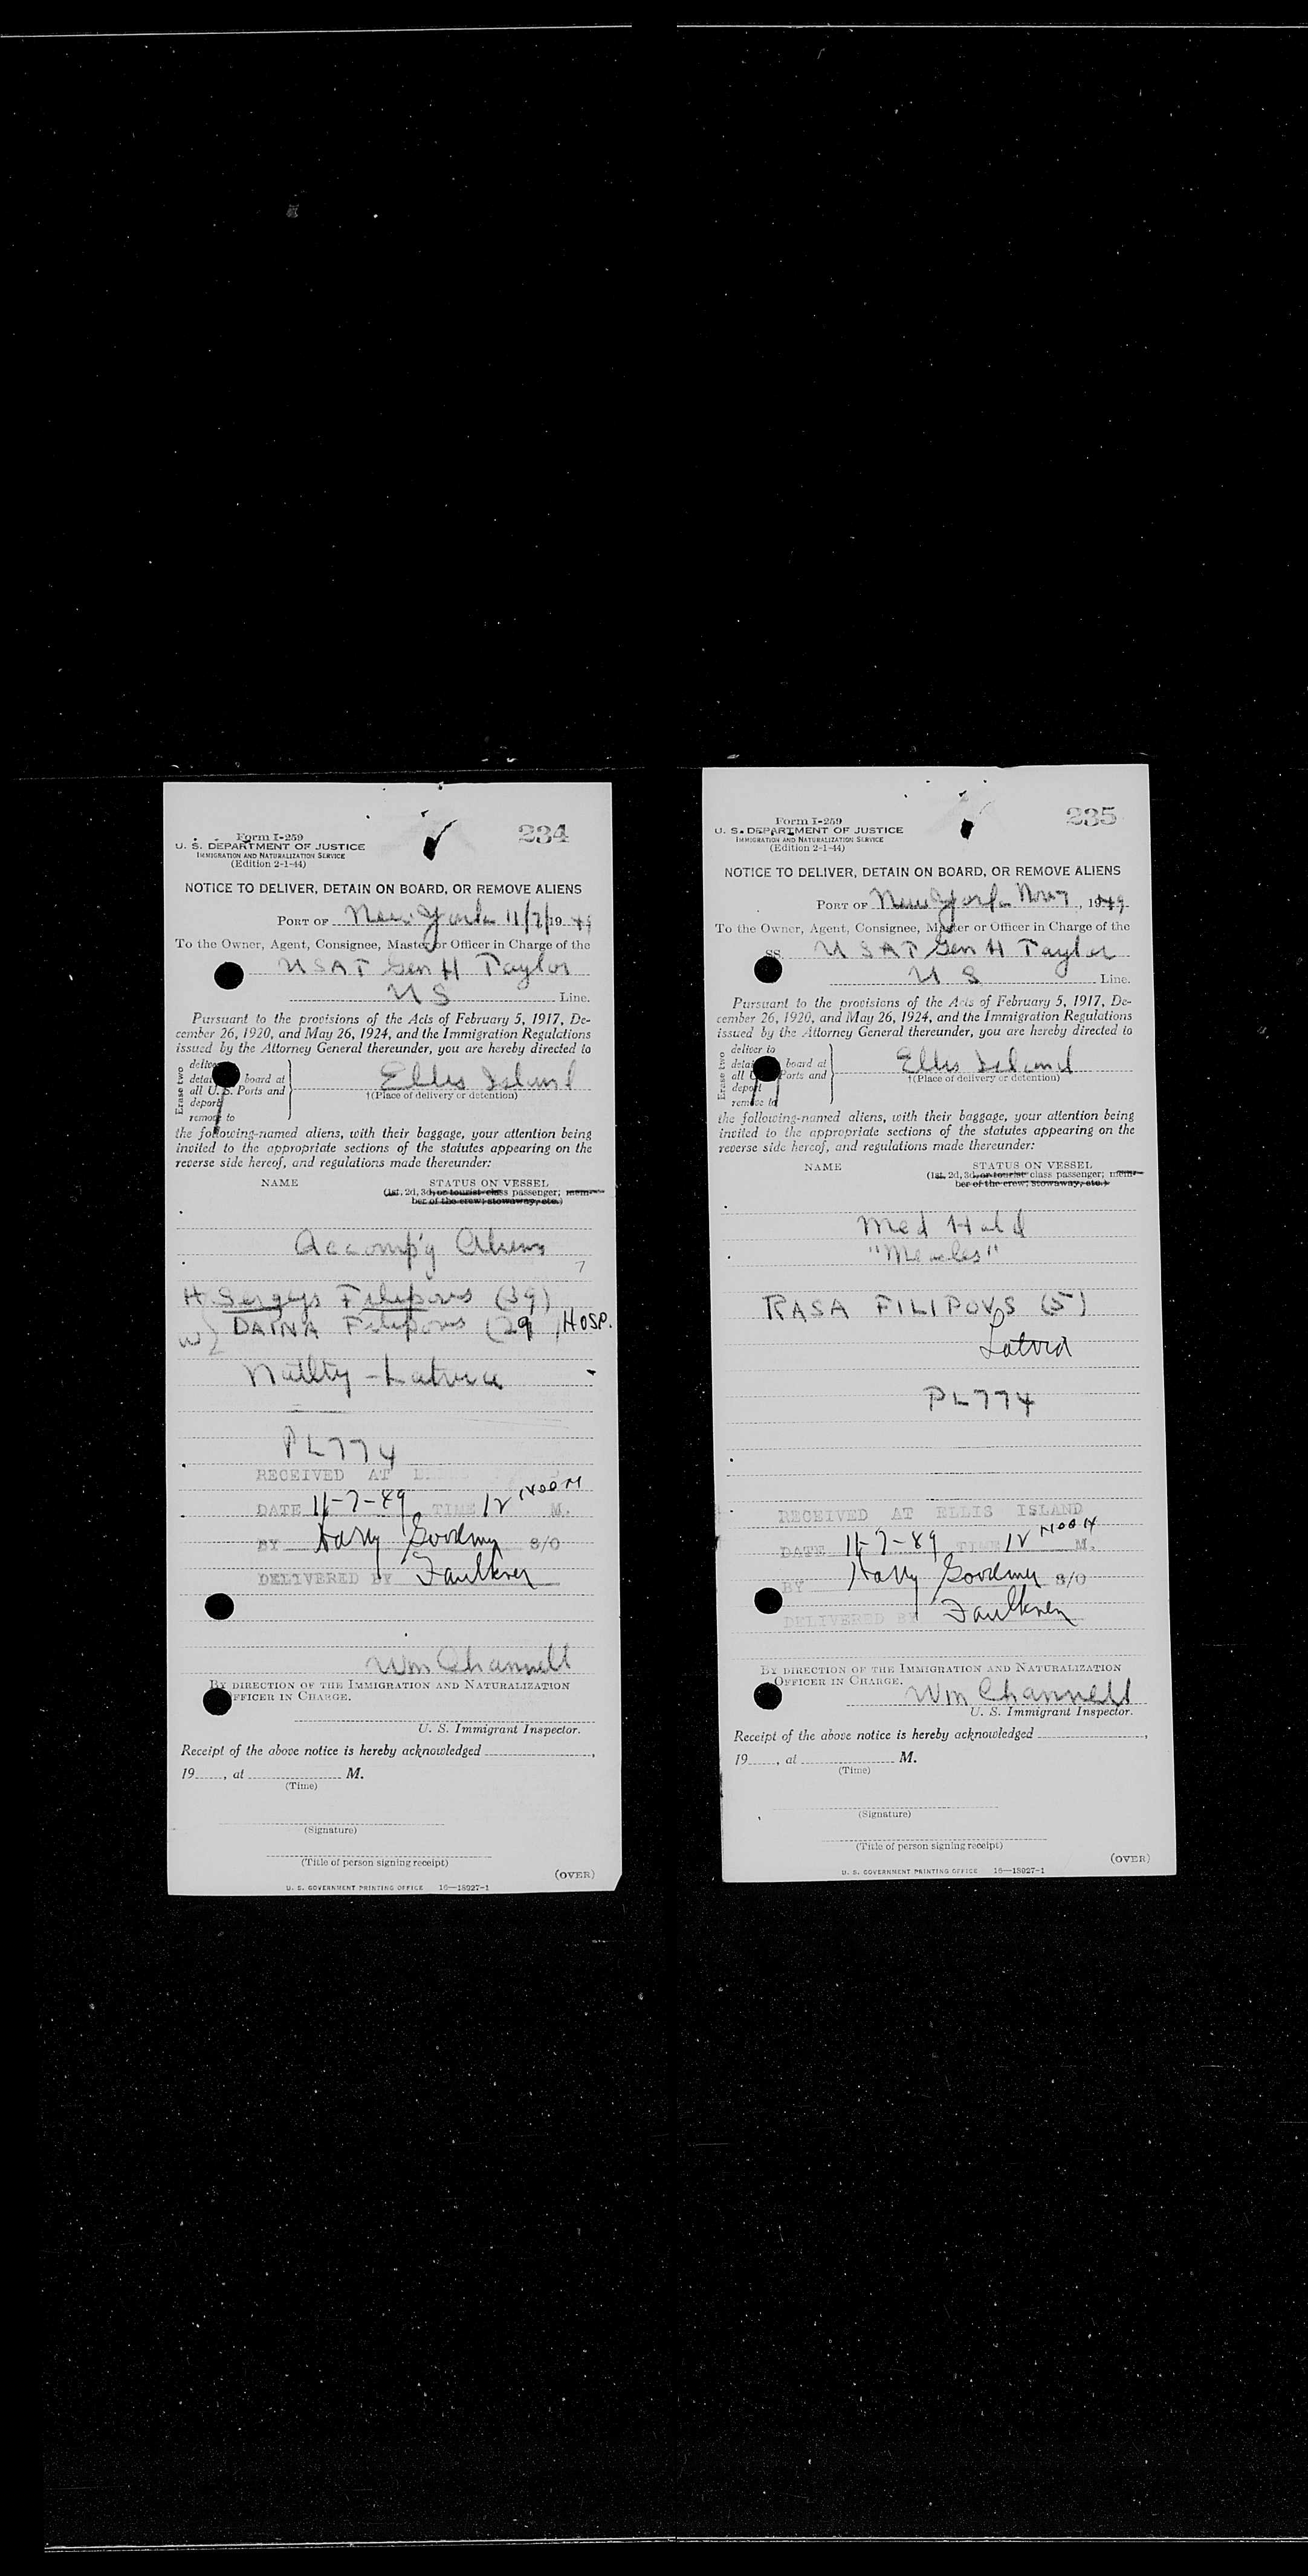 234
Form I-259
U. S. DEPARTMENT OF JUSTICE
IMMIGRATION AND NATURALIZATION SERVICE
(Edition 2-1-44)
NOTICE TO DELIVER, DETAIN ON BOARD, OR REMOVE ALIENS
PORT OF New York 11/7/1949
To the Owner, Agent, Consignee, Master or Officer in Charge of the
USAT Gen H Taylor
US Line.
Pursuant to the provisions of the Acts of February 5, 1917, De-
cember 26, 1920, and May 26, 1924, and the Immigration Regulations
issued by the Attorney General thereunder, you are hereby directed to
Erase two
board at
all U.S. Ports and
deport
remove to
Ellis Island
†(Place of delivery or detention)
the following-named aliens, with their baggage, your attention being
invited to the appropriate sections of the statutes appearing on the
reverse side hereof, and regulations made thereunder:
NAME STATUS ON VESSEL
(1st, 2d, 3d, or tourist class passenger; mem-
ber of the crew; stowaway, etc.)
Accomp'g Aliens
7
H Sergejs Filipovs (39)
w) DAINA Filipovs (29 HOSP.
Natlty - Latvia
PL774
RECEIVED AT
DATE 11-7-49 TIME 12 NOON M.
BY Harry Goodman S/O
DELIVERED BY Faulkner
Wm Channell
BY DIRECTION OF THE IMMIGRATION AND NATURALIZATION
OFFICER IN CHARGE.
U. S. Immigrant Inspector.
Receipt of the above notice is hereby acknowledged ,
19 , at M.
(Time)
(Signature)
(Title of person signing receipt)
(OVER)
U. S. GOVERNMENT PRINTING OFFICE 16—18027-1
235
Form I-259
U. S. DEPARTMENT OF JUSTICE
IMMIGRATION AND NATURALIZATION SERVICE
(Edition 2-1-44)
NOTICE TO DELIVER, DETAIN ON BOARD, OR REMOVE ALIENS
PORT OF New York Nov 7, 1949
To the Owner, Agent, Consignee, Master or Officer in Charge of the
SS. USAT Gen H Taylor
US Line.
Pursuant to the provisions of the Acts of February 5, 1917, De-
cember 26, 1920, and May 26, 1924, and the Immigration Regulations
issued by the Attorney General thereunder, you are hereby directed to
Erase two
deliver to
board at
all Ports and
deport
remove to
Ellis Island
†(Place of delivery or detention)
the following-named aliens, with their baggage, your attention being
invited to the appropriate sections of the statutes appearing on the
reverse side hereof, and regulations made thereunder:
NAME STATUS ON VESSEL
(1st, 2d, 3d, or tourist class passenger; mem-
ber of the crew; stowaway, etc.)
Med Hold
"Measles"
RASA FILIPOVS (5)
Latvia
PL774
RECEIVED AT ELLIS ISLAND
DATE 11-7-49 TIME 12 NOON M.
BY Harry Goodman S/O
DELIVERED BY Faulkner
BY DIRECTION OF THE IMMIGRATION AND NATURALIZATION
OFFICER IN CHARGE.
Wm Channell
U. S. Immigrant Inspector.
Receipt of the above notice is hereby acknowledged ,
19 , at M.
(Time)
(Signature)
(Title of person signing receipt)
(OVER)
U. S. GOVERNMENT PRINTING OFFICE 16—18027-1